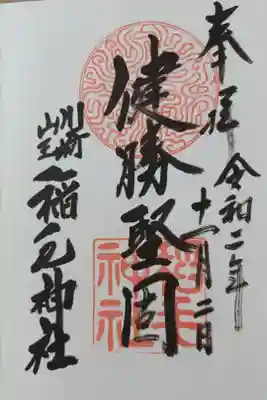 奉拝 令和二年
十一月二日
健勝堅固
川崎
山王
稲毛神社
稲毛神社